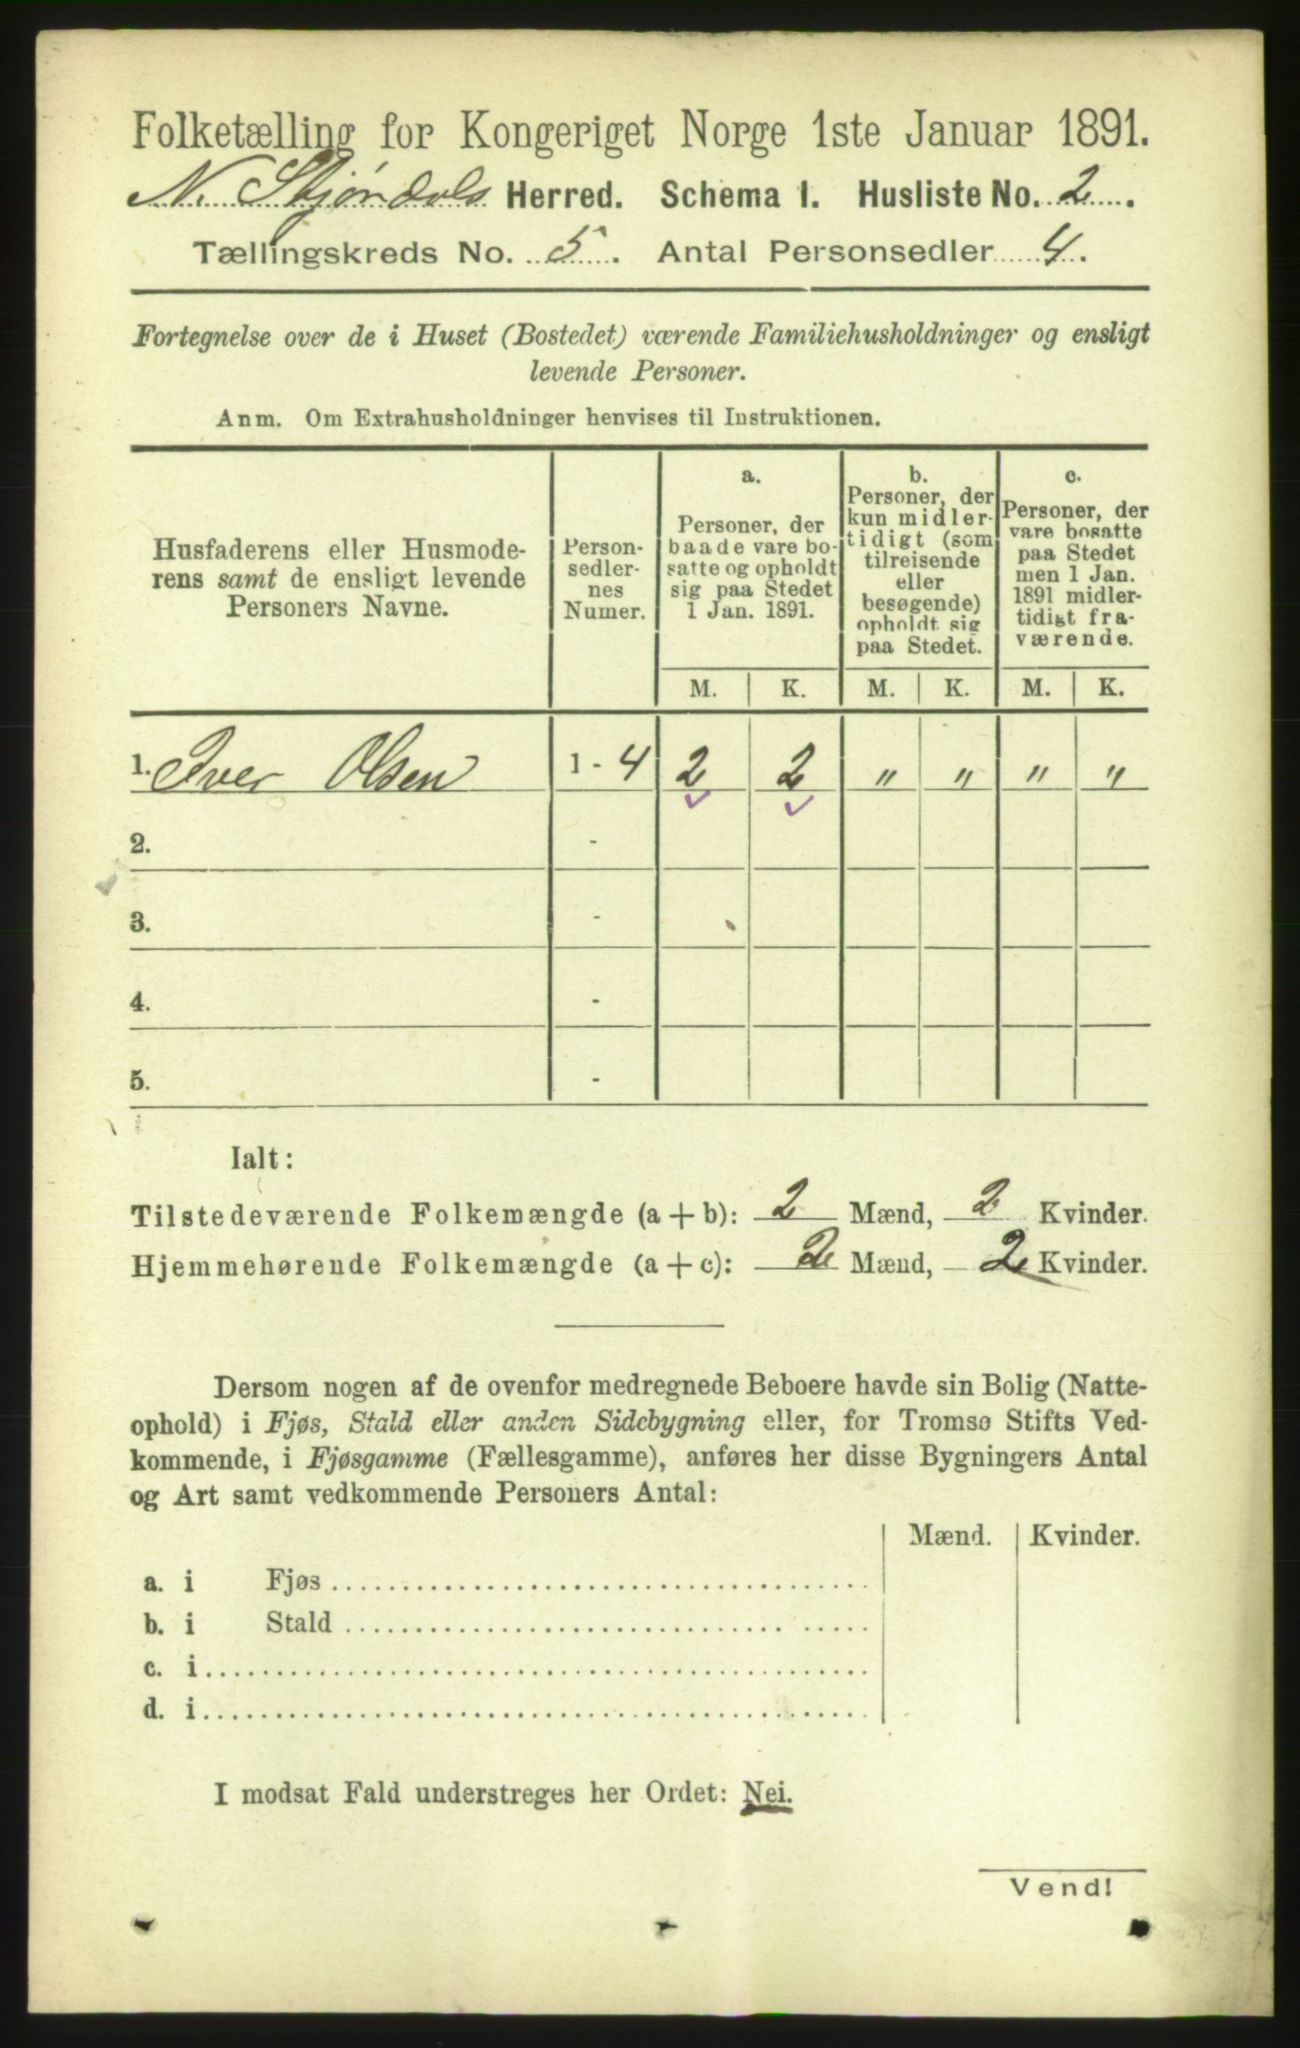 Folketælling for Kongeriget Norge 1ste Januar 1891.
N. Stjørdals Herred. Schema 1. Husliste No. 2.
Tællingskreds No. 5. Antal Personsedler 4.
Fortegnelse over de i Huset (Bostedet) værende Familiehusholdninger og ensligt
levende Personer.
Anm. Om Extrahusholdninger henvises til Instruktionen.
Husfaderens eller Husmode-
rens samt de ensligt levende
Personers Navne.
Person-
sedler-
nes
Numer.
a.
Personer, der
baade vare bo-
satte og opholdt
sig paa Stedet
1 Jan. 1891.
b.
Personer, der
kun midler-
tidigt (som
tilreisende
eller
besøgende)
opholdt sig
paa Stedet.
c.
Personer, der
vare bosatte
paa Stedet
men 1 Jan.
1891 midler-
tidigt fra-
værende.
M. K. M. K. M. K.
1. Iver Olsen 1 - 4 2 2 " " " "
2. -
3. -
4. -
5. -
Ialt:
Tilstedeværende Folkemængde (a + b): 2 Mænd, 2 Kvinder.
Hjemmehørende Folkemængde (a + c): 2 Mænd, 2 Kvinder.
Dersom nogen af de ovenfor medregnede Beboere havde sin Bolig (Natte-
ophold) i Fjøs, Stald eller anden Sidebygning eller, for Tromsø Stifts Ved-
kommende, i Fjøsgamme (Fællesgamme), anføres her disse Bygningers Antal
og Art samt vedkommende Personers Antal:
Mænd. Kvinder.
a. i Fjøs
b. i Stald
c. i
d. i
I modsat Fald understreges her Ordet: Nei.
Vend!